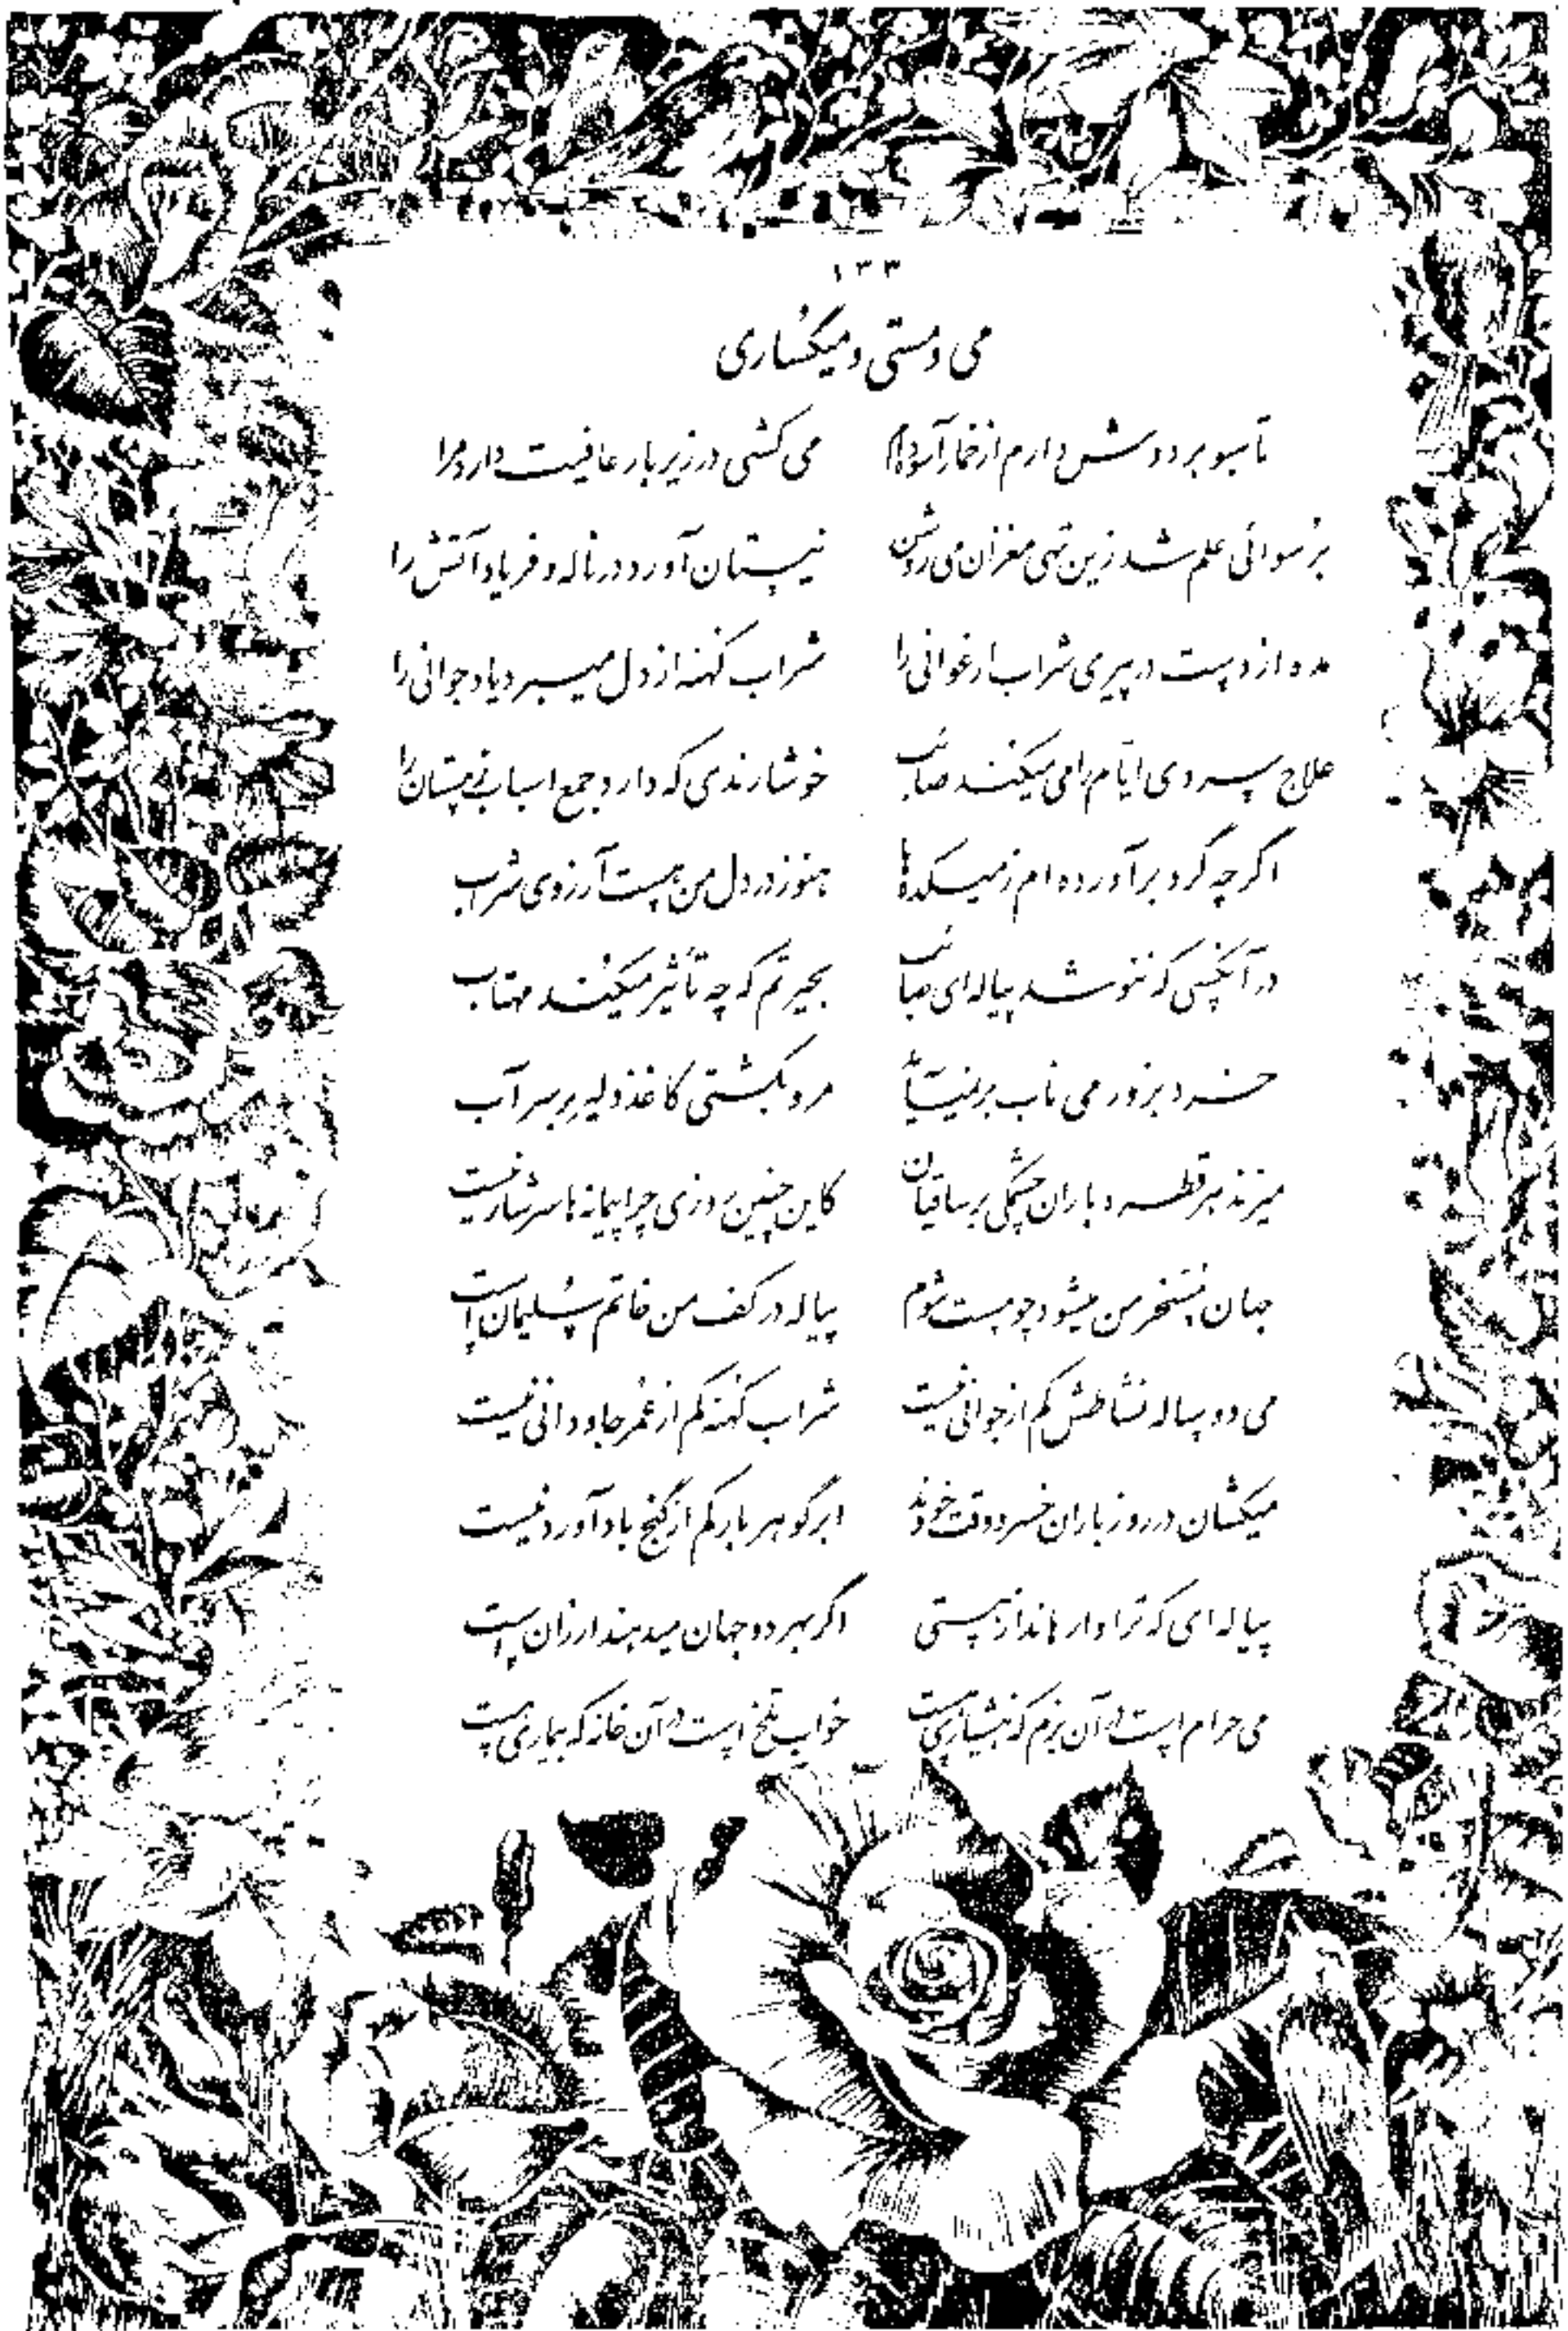 ۱۳۳
می و مستی و میگساری
تا سبو بر دوش دارم از خمار آسوده‌ام می کشی در زیر بار عافیت دارد مرا
برسوائی علم شد زین تهی مغزان می روشن نیستان آورد در ناله و فریاد آتش را
مده از دست در پیری شراب ارغوانی را شراب کهنه از دل میبرد یاد جوانی را
علاج سردی ایام را می میکند صائب خوشا رندی که دارد جمع اسباب زمستان را
اگر چه گرد برآورده‌ام ز میکده‌ها هنوز در دل من هست آرزوی شراب
در آنکسی که ننوشد پیاله‌ای صائب بحیرتم که چه تأثیر میکند مهتاب
خرد بزور می ناب بر نمیآید مرو بکشتی کاغذ دلیر بر سر آب
میزند هر قطره باران چشمکی بر ساقیان کاین چنین روزی چرا پیمانه‌ها سرشار نیست
جهان مسخر من میشود چو مست شوم پیاله در کف من خاتم سلیمان است
می دو ساله نشاطش کم از جوانی نیست شراب کهنه کم از عمر جاودانی نیست
میکشان در روز باران خسرو وقت خودند ابر گوهر بار کم از گنج بادآورد نیست
پیاله‌ای که ترا وارهاند از هستی اگر بهر دو جهان میدهند ارزان است
می حرام است در آن بزم که هشیاری هست خواب تلخ است در آن خانه که بیماری هست